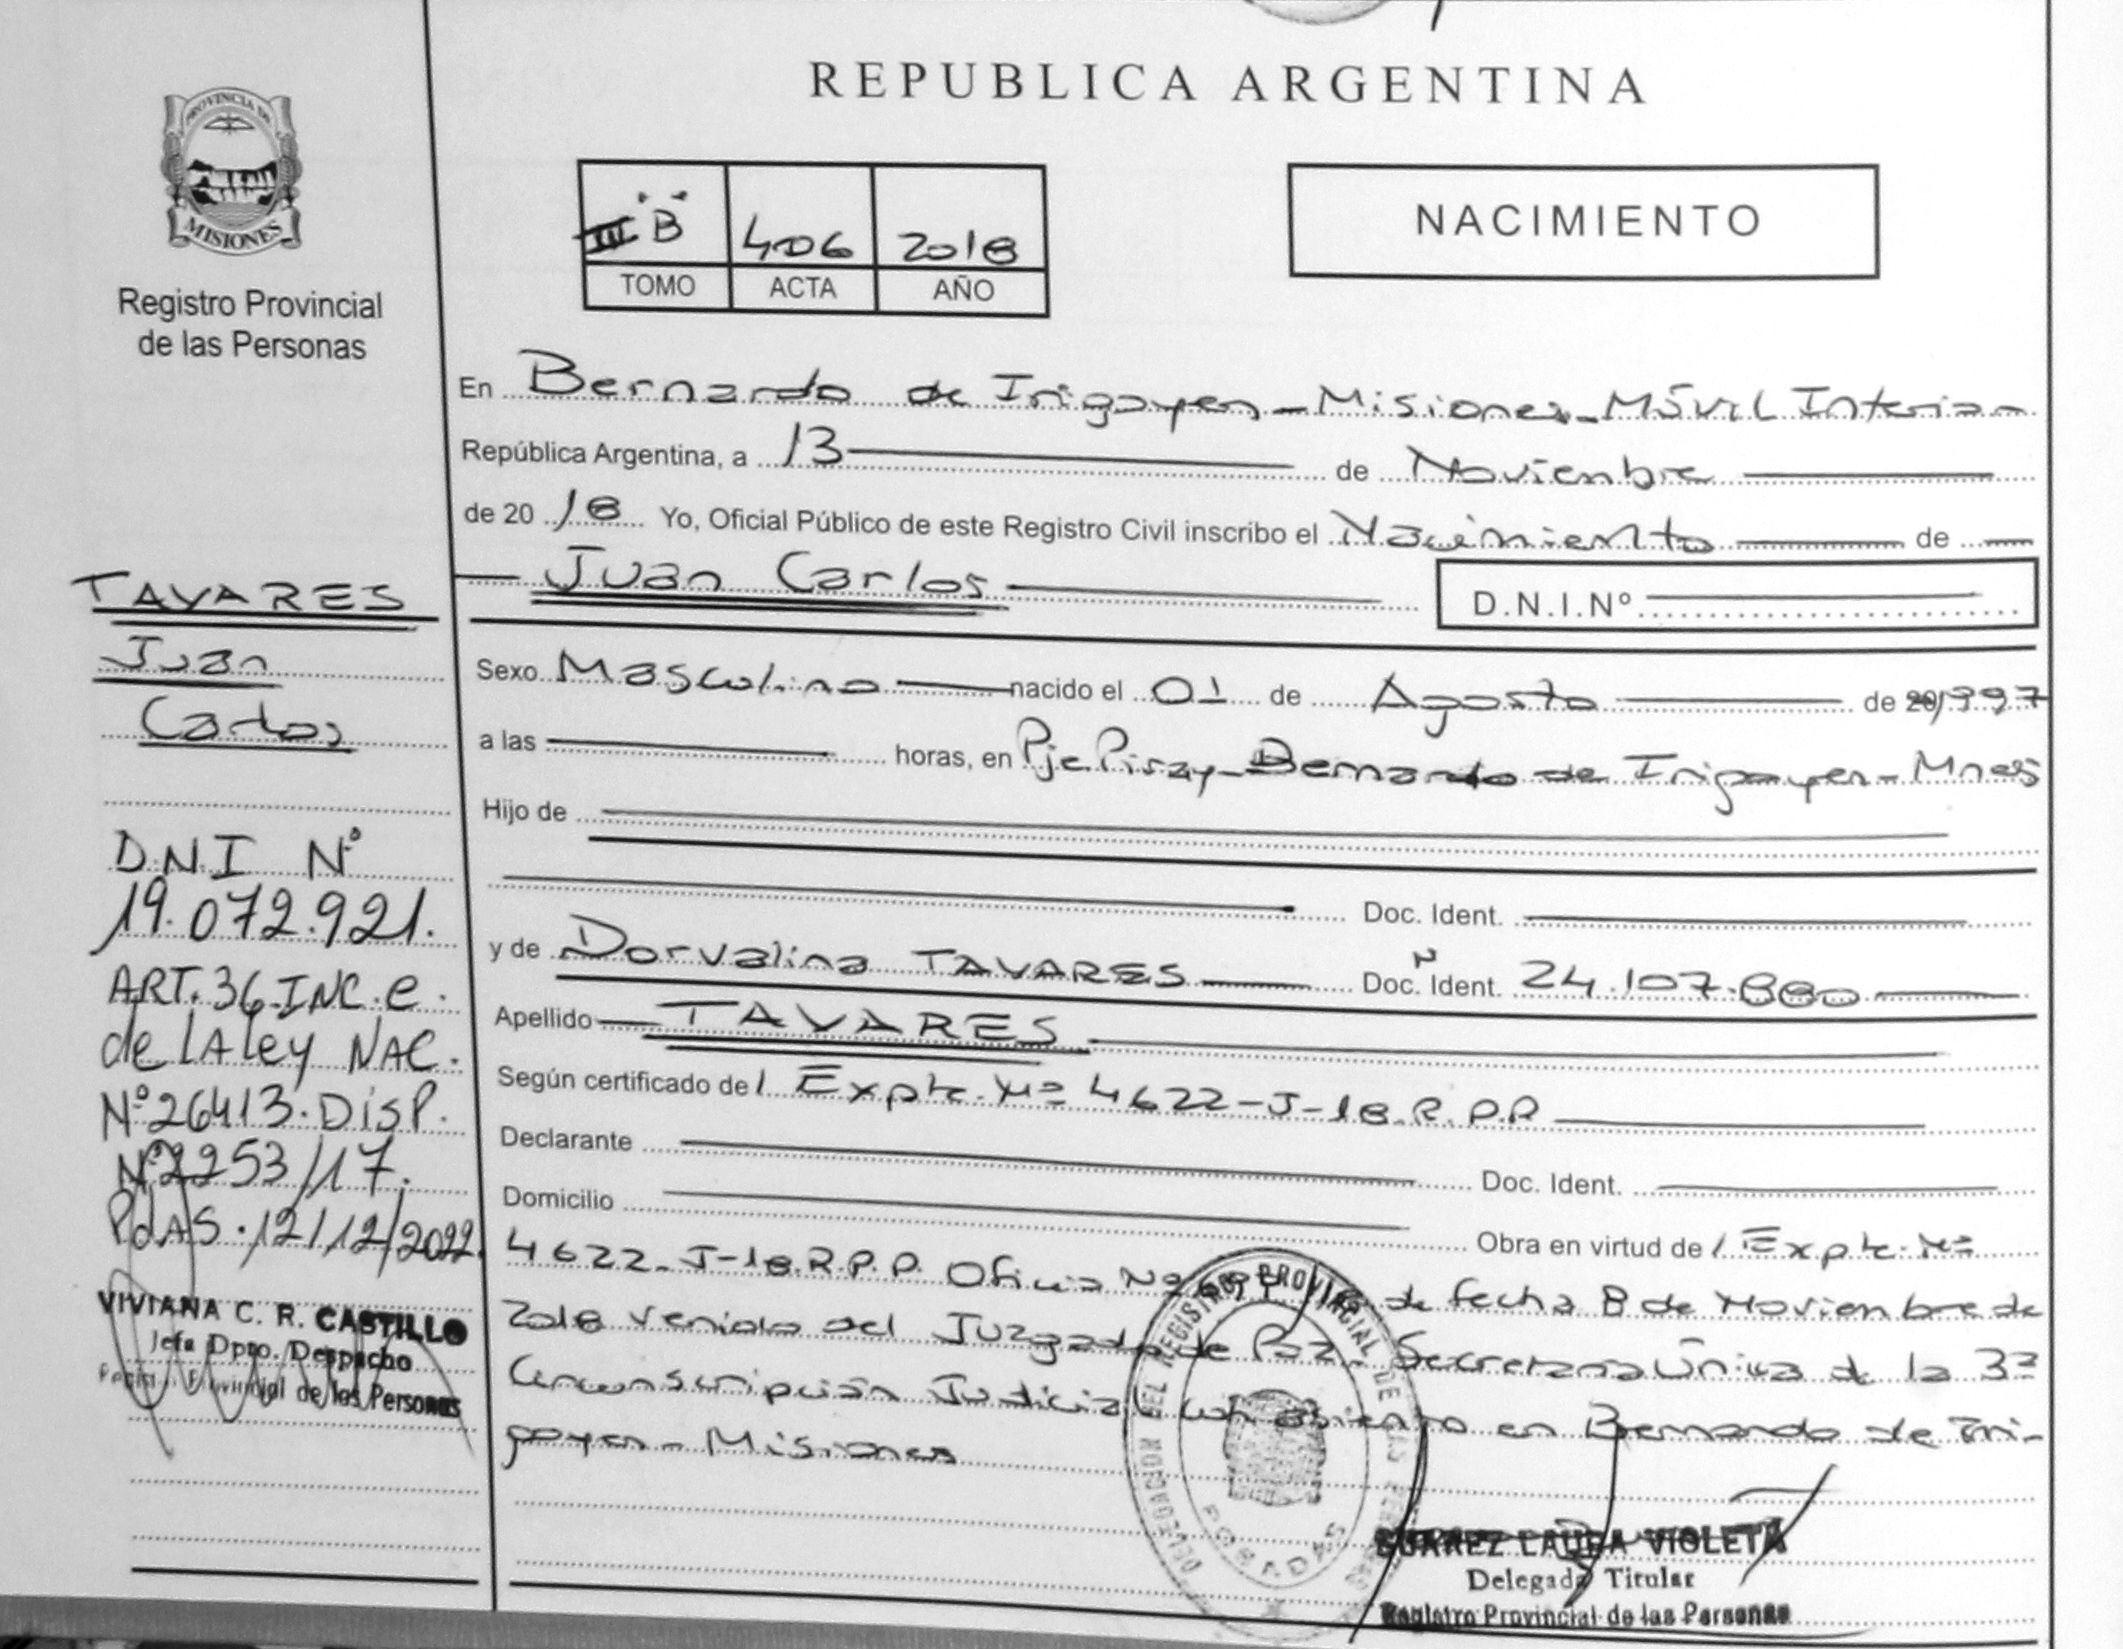 REPUBLICA ARGENTINA
PROVINCIA DE
MISIONES
Registro Provincial
de las Personas
III "B" 406 2018
TOMO ACTA AÑO
NACIMIENTO
En Bernardo de Irigoyen - Misiones - Móvil Interior
República Argentina, a 13 de Noviembre
de 2018 Yo, Oficial Público de este Registro Civil inscribo el Nacimiento de
Juan Carlos D.N.I.Nº
Sexo Masculino nacido el 01 de Agosto de 1997
a las horas, en Pje Piray - Bernardo de Irigoyen - Mnes
Hijo de
Doc. Ident.
y de Dorvalina TAVARES Doc. N Ident. 24.107.880
Apellido TAVARES
Según certificado del Expte. Nº 4622-J-18.R.P.P
Declarante Doc. Ident.
Domicilio
Obra en virtud del Expte. Nº
4622-J-18.R.P.P. Oficio Nº de fecha 8 de Noviembre de
2018 venido del Juzgado de Paz. Secretaria Única de la 3ª
Circunscripción Judicial con asiento en Bernardo de Iri-
goyen - Misiones
TAVARES
Juan
Carlos
D.N.I Nº
19.072.921.
ART. 36 INC. e.
de LA ley NAC.
Nº 26413. DISP.
Nº 2253/17.
PdAS. 12/12/2022.
VIVIANA C. R. CASTILLO
Jefa Dpto. Despacho
Regist. Provincial de las Personas
DELEGACION DEL REGISTRO PROVINCIAL DE LAS PERSONAS
POSADAS
SUAREZ LAURA VIOLETA
Delegada Titular
Registro Provincial de las Personas